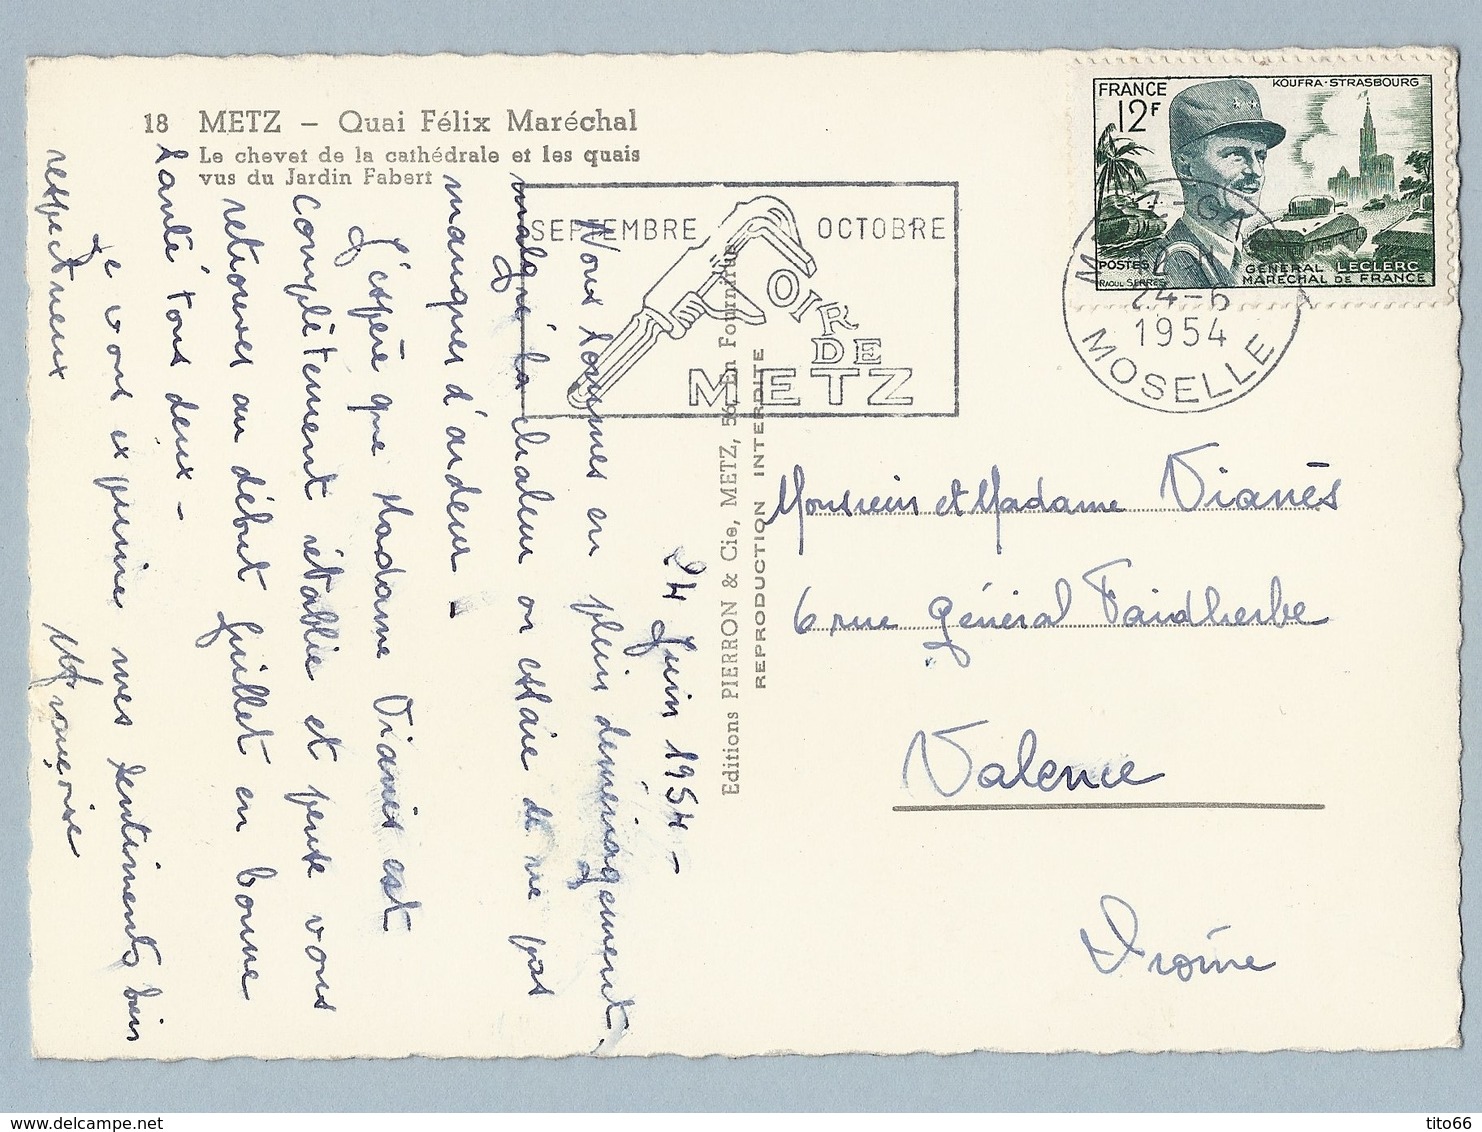 18 METZ – Quai Félix Maréchal
Le chevet de la cathédrale et les quais
vus du Jardin Fabert
SEPTEMBRE OCTOBRE
FOIRE
DE
METZ
FRANCE
12F
KOUFRA·STRASBOURG
POSTES
RAOUL SERRES
GÉNÉRAL LECLERC
MARÉCHAL DE FRANCE
24-6
1954
MOSELLE
Editions PIERRON & Cie, METZ, 56, En Fournirue
REPRODUCTION INTERDITE
24 Juin 1954 –
Nous sommes en plein déménagement,
malgré la chaleur on essaie de ne pas
manquer d'ardeur –
J'espère que Madame Vianès est
complètement rétablie et pense vous
retrouver au début Juillet en bonne
santé tous deux –
Je vous exprime mes sentiments bien
respectueux
Françoise
Monsieur et Madame Vianès
6 rue Général Faidherbe
Valence
Drôme
tito66